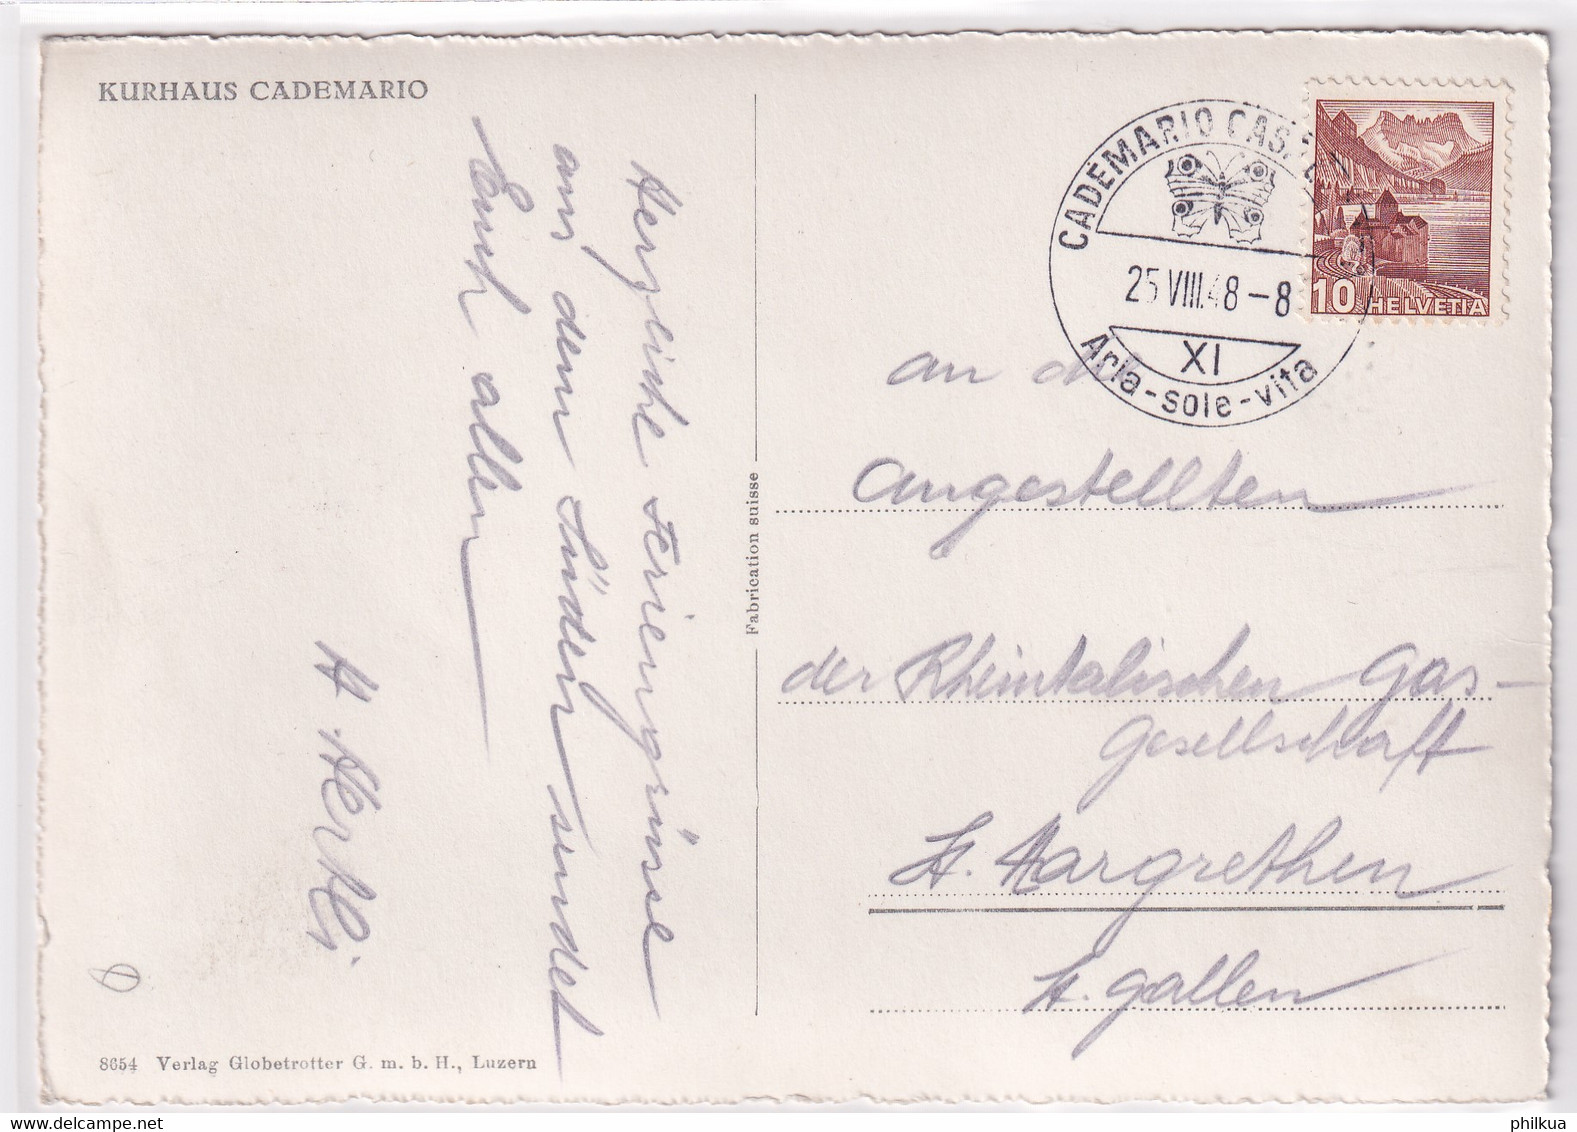 KURHAUS CADEMARIO
Herzliche Feriengrüsse
aus dem Süden sendet
Euch allen
H. Herkli
8654 Verlag Globetrotter G. m. b. H., Luzern
Fabrication suisse
CADEMARIO
25 VIII.48-8
XI
Aria-sole-vita
10 HELVETIA
an die
Angestellten
der Rheintalischen Gas-
Gesellschaft
St. Margrethen
St. Gallen
philkua